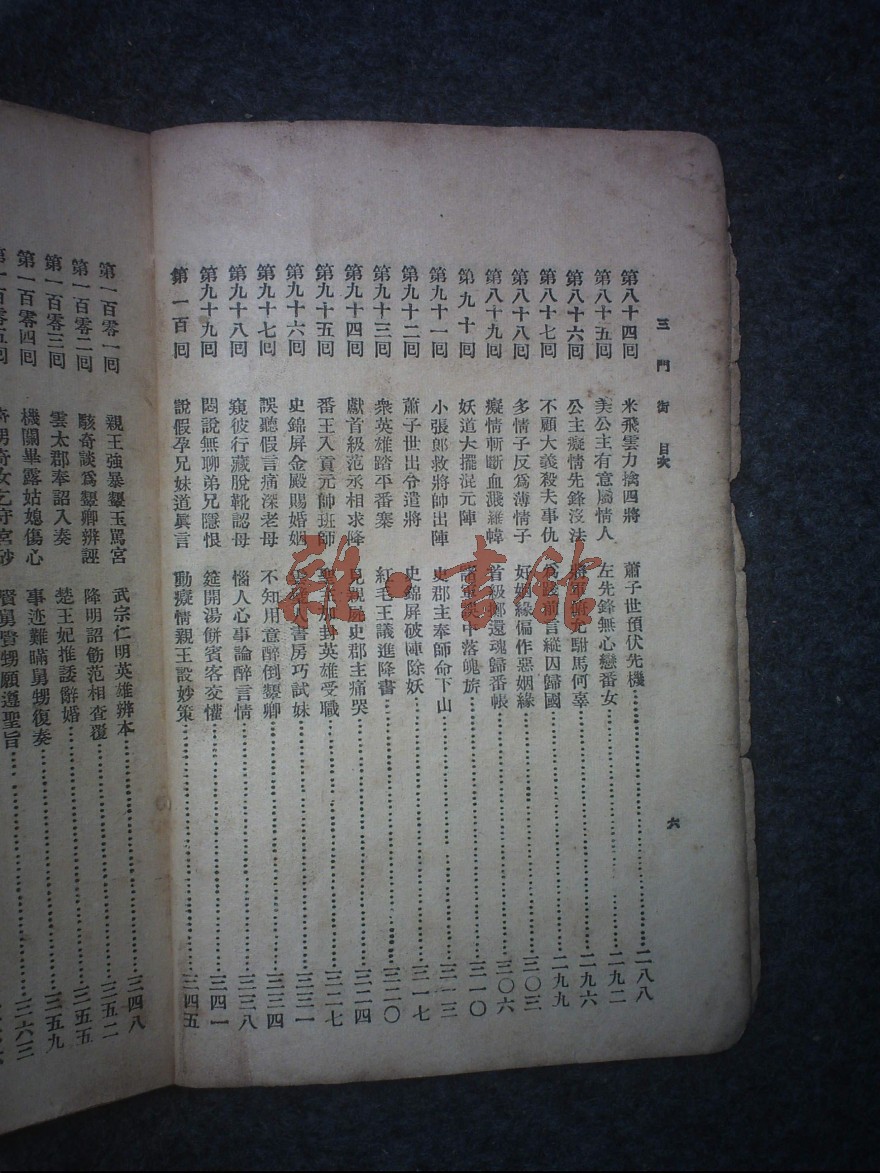 三門街 目次 六
第八十四回 米飛雲力擒四將 蕭子世預伏先機 二八八
第八十五回 美公主有意屬情人 左先鋒無心戀番女 二九二
第八十六回 公主癡情先鋒沒法 將軍 允駙馬何辜 二九六
第八十七回 不顧大義殺夫事仇 前言縱囚歸國 二九九
第八十八回 多情子反為薄情子 好姻緣偏作惡姻緣 三〇三
第八十九回 癡情斬斷血濺羅幃 首級鄉還魂歸番帳 三〇六
第九十回 妖道大擺混元陣 中落魄旂 三一〇
第九十一回 小張郎救將帥出陣 史郡主奉師命下山 三一三
第九十二回 蕭子世出令遣將 史錦屏破陣除妖 三一七
第九十三回 衆英雄踏平番寨 紅毛王議進降書 三二〇
第九十四回 獻首級范丞相求降 見親屍史郡主痛哭 三二四
第九十五回 番王入貢元帥班師 聖主加封英雄受職 三二七
第九十六回 史錦屏金殿賜婚姻 人書房巧試妹 三三一
第九十七回 誤聽假言痛深老母 不知用意醉倒顰卿 三三四
第九十八回 窺彼行藏脫靴認母 惱人心事論醉言情 三三八
第九十九回 悶說無聊弟兄隱恨 筵開湯餅賓客交懽 三四一
第一百回 說假孕兄妹道眞言 動癡情親王設妙策 三四五
第一百零一回 親王強暴顰玉罵宮 武宗仁明英雄辨本 三四八
第一百零二回 駭奇談爲顰卿辨誣 降明詔飭范相查覆 三五二
第一百零三回 雲太郡奉詔入奏 楚王妃推諉辭婚 三五五
第一百零四回 機關畢露姑媳傷心 事迹難瞞舅甥復奏 三五九
第一百零五回 奇男奇女乞守宮砂 賢舅賢甥願遵聖旨 三六三
雜·書館